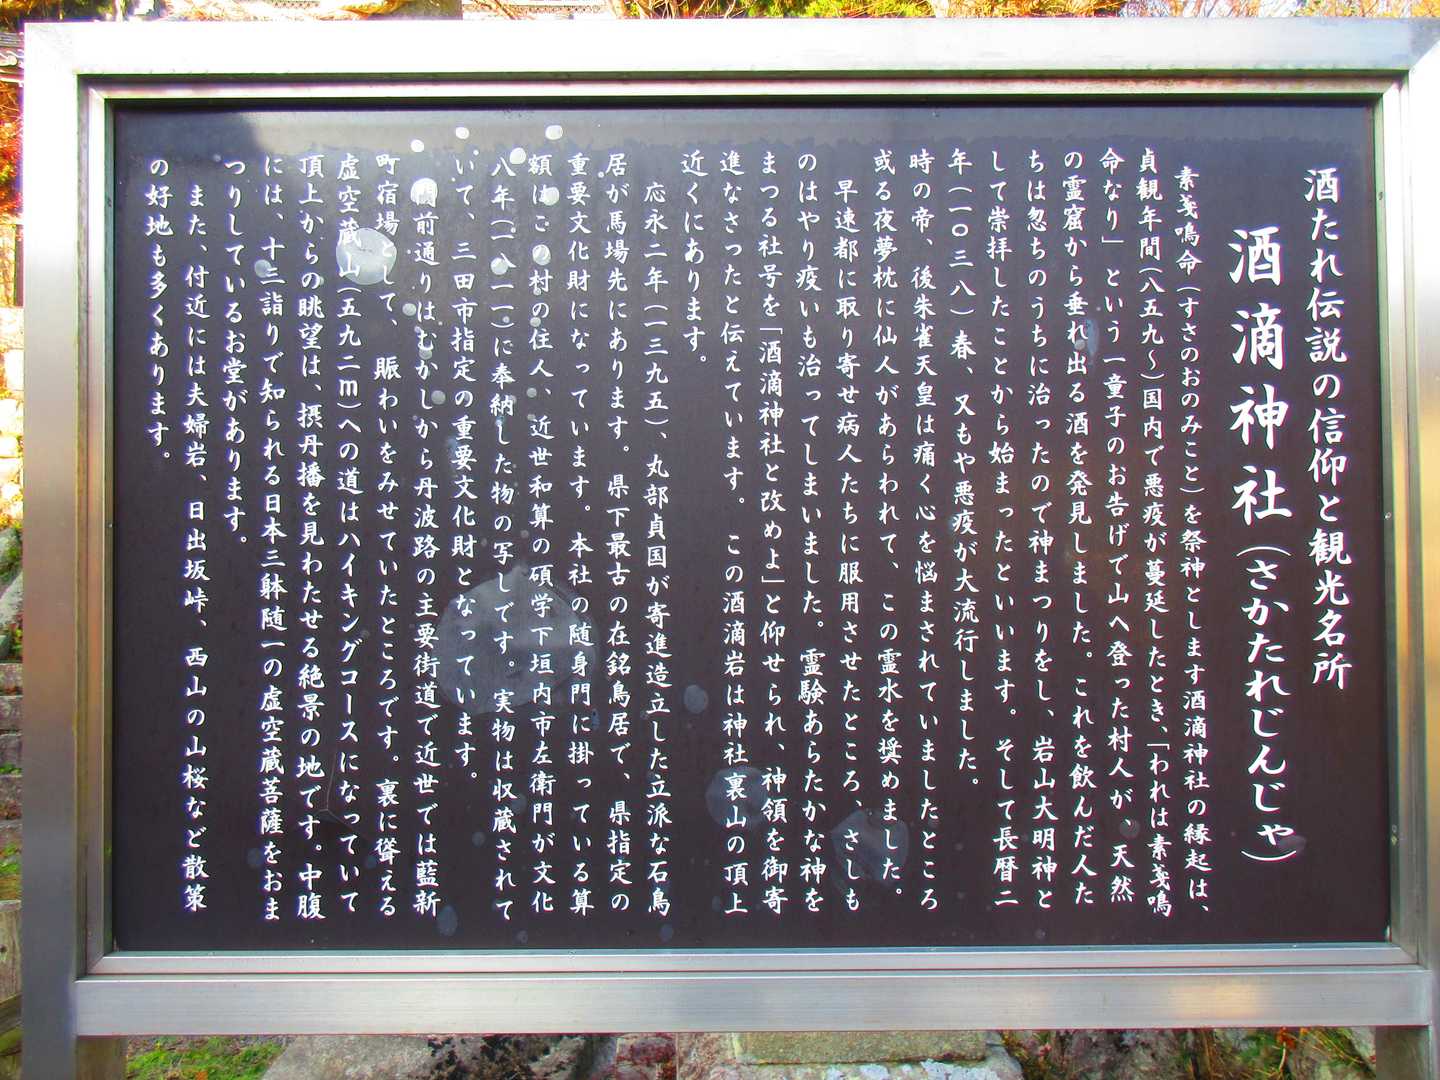 酒たれ伝説の信仰と観光名所
酒滴神社(さかたれじんじゃ)
素戔鳴命(すさのおのみこと)を祭神とします酒滴神社の縁起は、
貞観年間(八五九〜)国内で悪疫が蔓延したとき、「われは素戔鳴
命なり」という一童子のお告げで山へ登った村人が、天然
の霊窟から垂れ出る酒を発見しました。これを飲んだ人た
ちは忽ちのうちに治ったので神まつりをし、岩山大明神と
して崇拝したことから始まったといいます。そして長暦二
年(一〇三八)春、又もや悪疫が大流行しました。
時の帝、後朱雀天皇は痛く心を悩まされていましたところ
或る夜夢枕に仙人があらわれて、この霊水を奨めました。
早速都に取り寄せ病人たちに服用させたところ、さしも
のはやり疫いも治ってしまいました。霊験あらたかな神を
まつる社号を「酒滴神社と改めよ」と仰せられ、神領を御寄
進なさったと伝えています。この酒滴岩は神社裏山の頂上
近くにあります。
応永二年(一三九五)、丸部貞国が寄進造立した立派な石鳥
居が馬場先にあります。県下最古の在銘鳥居で、県指定の
重要文化財になっています。本社の随身門に掛っている算
額はこの村の住人、近世和算の碩学下垣内市左衛門が文化
八年(一八一一)に奉納した物の写しです。実物は収蔵されて
いて、三田市指定の重要文化財となっています。
門前通りはむかしから丹波路の主要街道で近世では藍新
町宿場として、賑わいをみせていたところです。裏に聳える
虚空蔵山(五九二m)への道はハイキングコースになっていて
頂上からの眺望は、摂丹播を見わたせる絶景の地です。中腹
には、十三詣りで知られる日本三躰随一の虚空蔵菩薩をおま
つりしているお堂があります。
また、付近には夫婦岩、日出坂峠、西山の山桜など散策
の好地も多くあります。